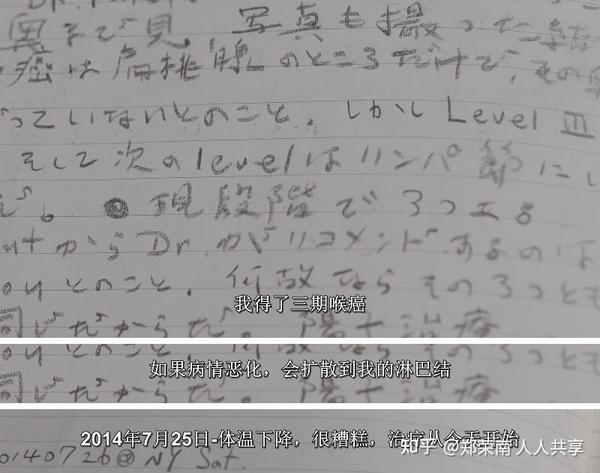 で見 写真も撮った結
癌は扁桃腺のところだけで、その
っていないとのこと. しかし Level III
そして次のlevelはリンパ節にし
現段階で3つ
からDr.がリコメンド あるのは
とのこと、何故ならその3つとも
我得了三期喉癌
同じだからだ。 治療
如果病情恶化，会扩散到我的淋巴结
同じだからだ。 治療
2014年7月25日-体温下降，很糟糕，治疗从今天开始
知乎 @郑荣南·人人共享
20140726@NY Sat.